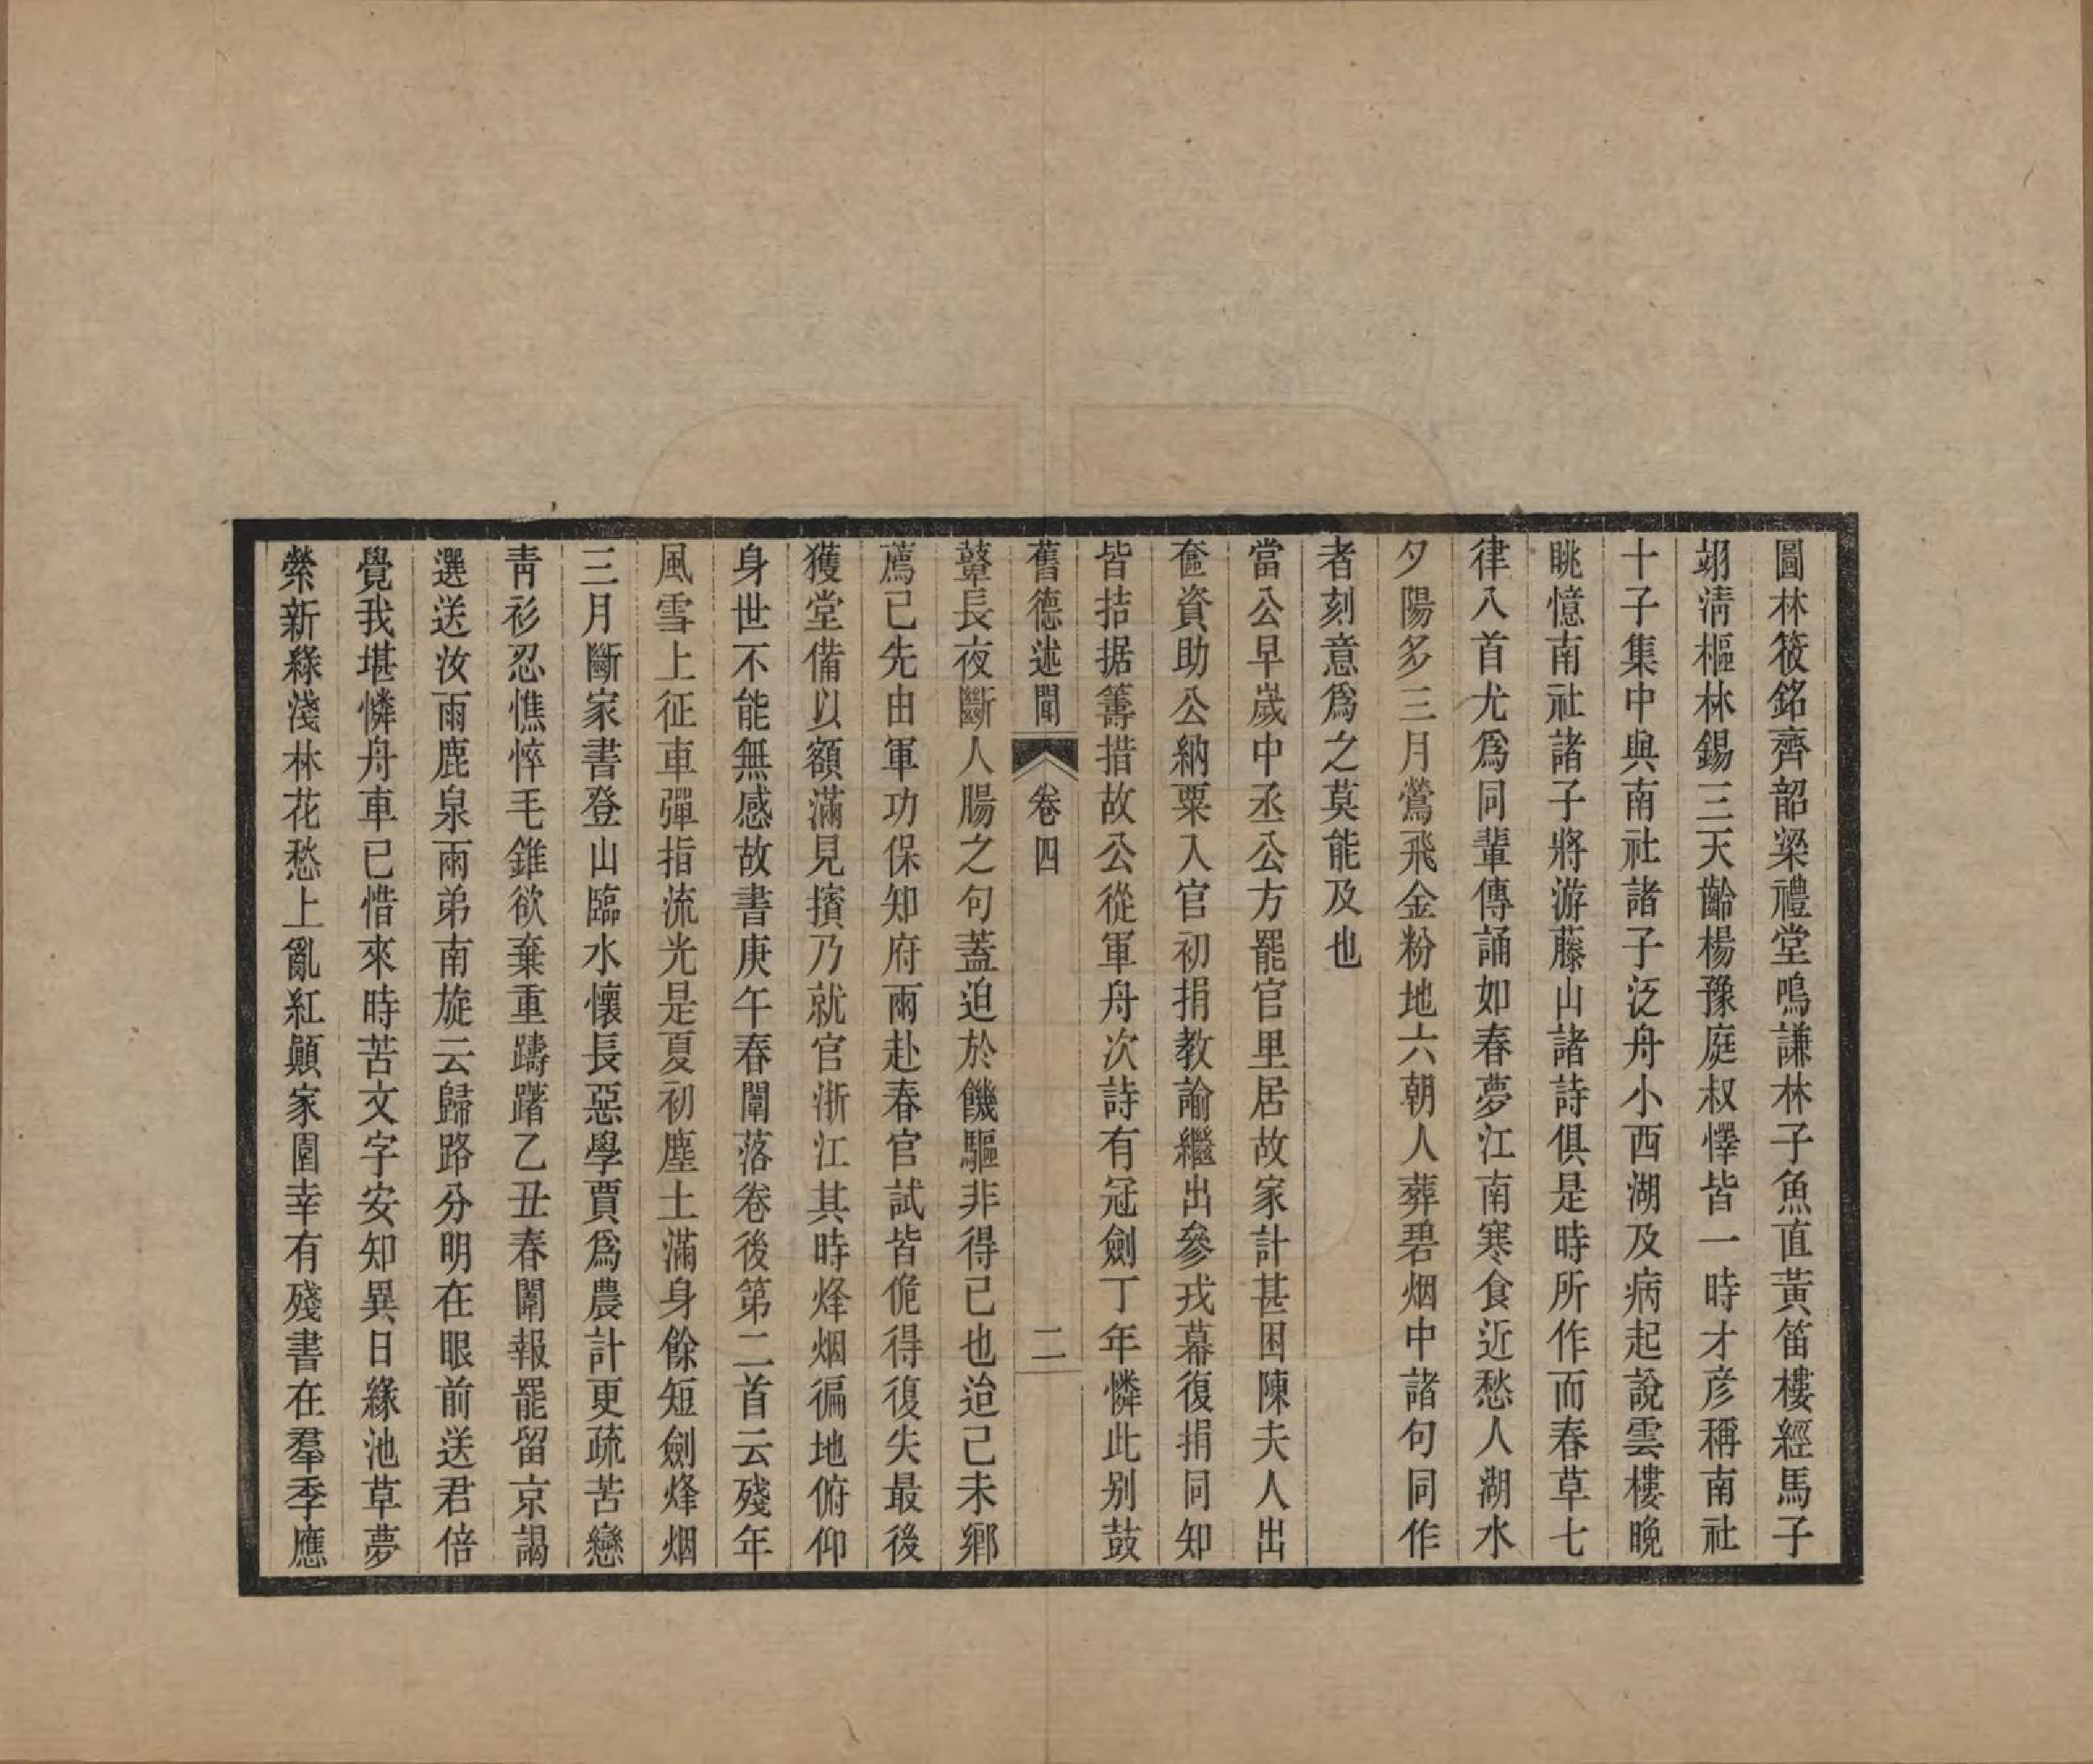 圖林筱銘齊韶梁禮堂鳴謙林子魚直黃笛樓經馬子
翊淸樞林錫三天齡楊豫庭叔懌皆一時才彦稱南社
十子集中與南社諸子泛舟小西湖及病起說雲樓晚
眺憶南社諸子將游藤山諸詩俱是時所作而春草七
律八首尤爲同輩傳誦如春夢江南寒食近愁人湖水
夕陽多三月鶯飛金粉地六朝人葬碧烟中諸句同作
者刻意爲之莫能及也
當公早歲中丞公方罷官里居故家計甚困陳夫人出
奩資助公納粟入官初捐教諭繼出參戎幕復捐同知
皆拮据籌措故公從軍舟次詩有冠劍丁年憐此别鼓
舊德述聞 卷四 二
鼙長夜斷人腸之句蓋迫於饑驅非得已也迨己未鄉
薦已先由軍功保知府兩赴春官試皆佹得復失最後
獲堂備以額滿見擯乃就官浙江其時烽烟徧地俯仰
身世不能無感故書庚午春闈落卷後第二首云殘年
風雪上征車彈指流光是夏初塵土滿身餘短劍烽烟
三月斷家書登山臨水懷長惡學賈爲農計更疏苦戀
靑衫忍憔悴毛錐欲棄重躊躇乙丑春闈報罷留京謁
選送汝雨鹿泉兩弟南旋云歸路分明在眼前送君倍
覺我堪憐舟車已惜來時苦文字安知異日緣池草夢
縈新綠淺林花愁上亂紅顚家園幸有殘書在羣季應